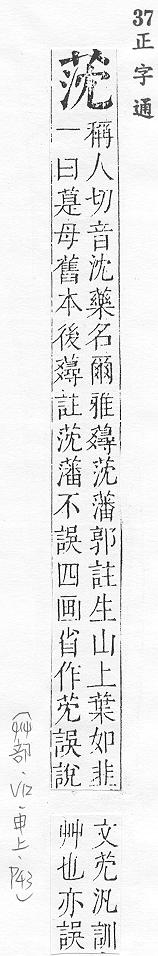 37
正字通
莐
稱人切音沈藥名爾雅䕭莐藩郭註生山上葉如韭
一曰母舊本後䕭註莐藩不誤四画省作誤說
文汎訓
艸也亦誤
(艸部·V12·申上·P43)